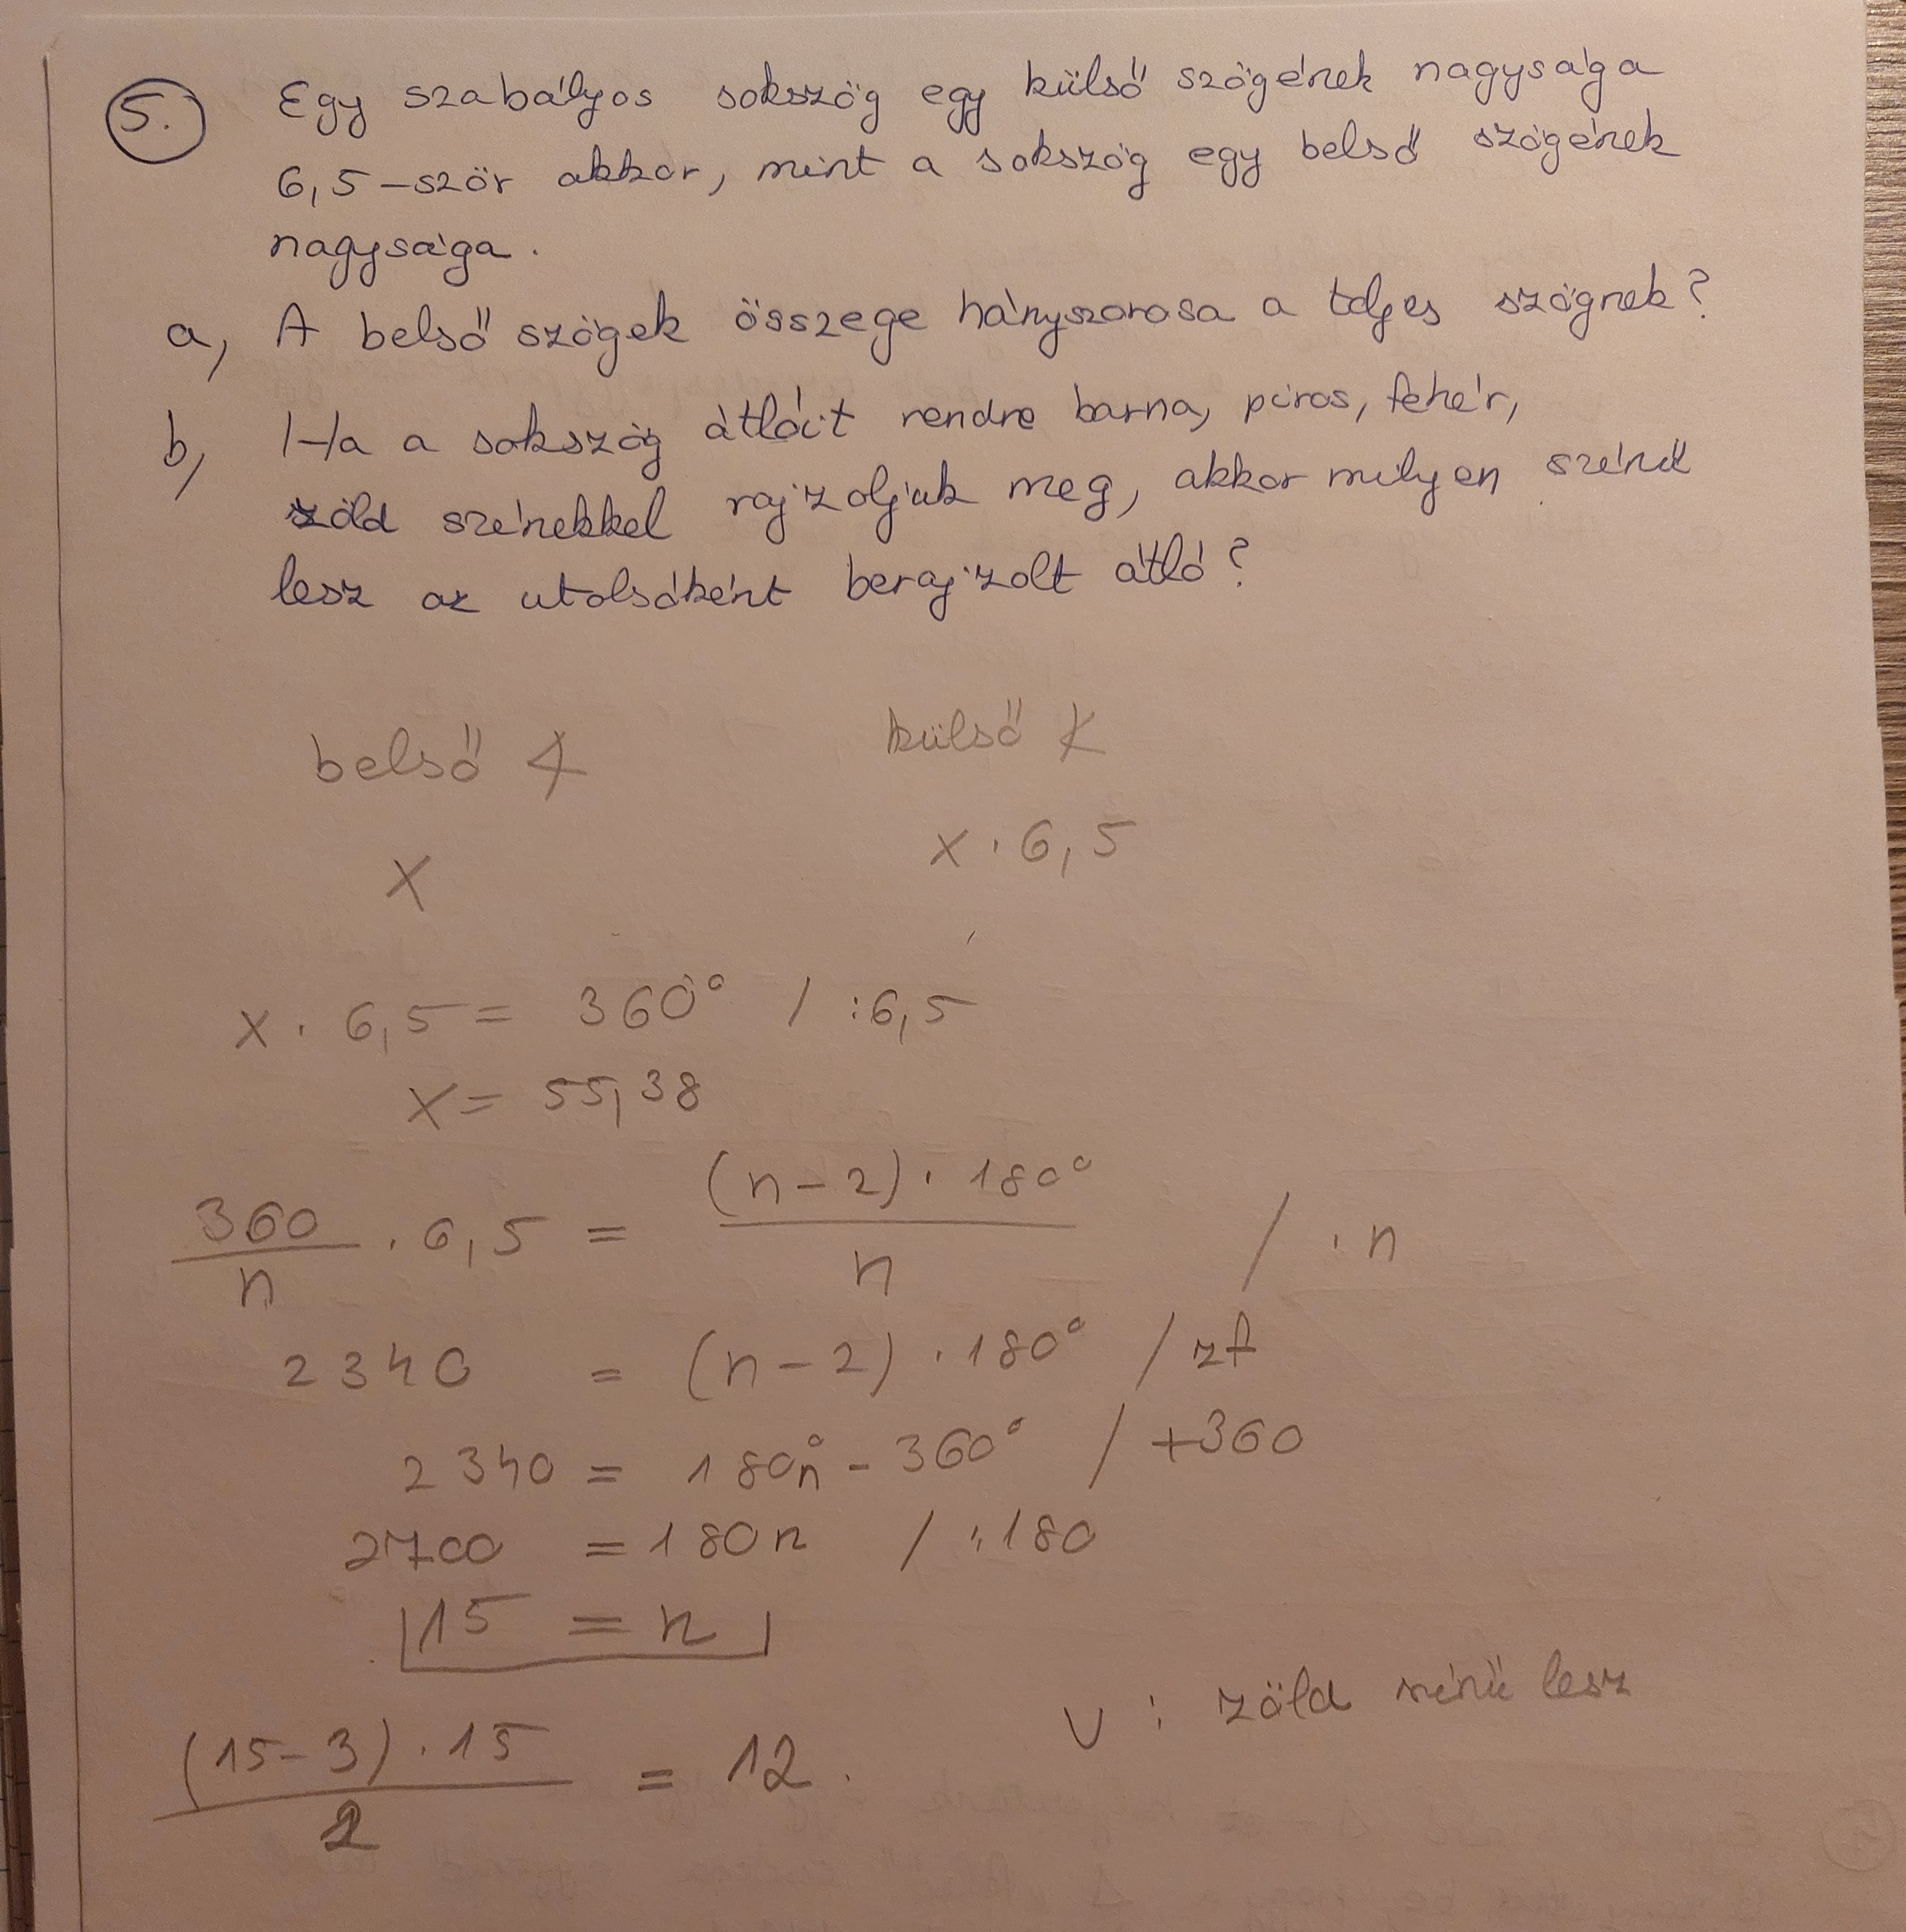 5. Egy szabályos sokszög egy külső szögének nagysága
6,5-ször akkor, mint a sokszög egy belső szögének
nagysága.
a, A belső szögek összege hányszorosa a teljes szögnek?
b, Ha a sokszög átlóit rendre barna, piros, fehér,
zöld színekkel rajzoljuk meg, akkor milyen színű
lesz az utolsóként berajzolt átló?
belső ∢ külső ∢
x x · 6,5
x · 6,5 = 360° / :6,5
x = 55,38
360/n · 6,5 = (n-2) · 180°/n / · n
2340 = (n-2) · 180° / zf
2340 = 180°n - 360° / +360
2700 = 180n / :180
15 = n
V : zöld színű lesz
(15-3) · 15/2 = 12.